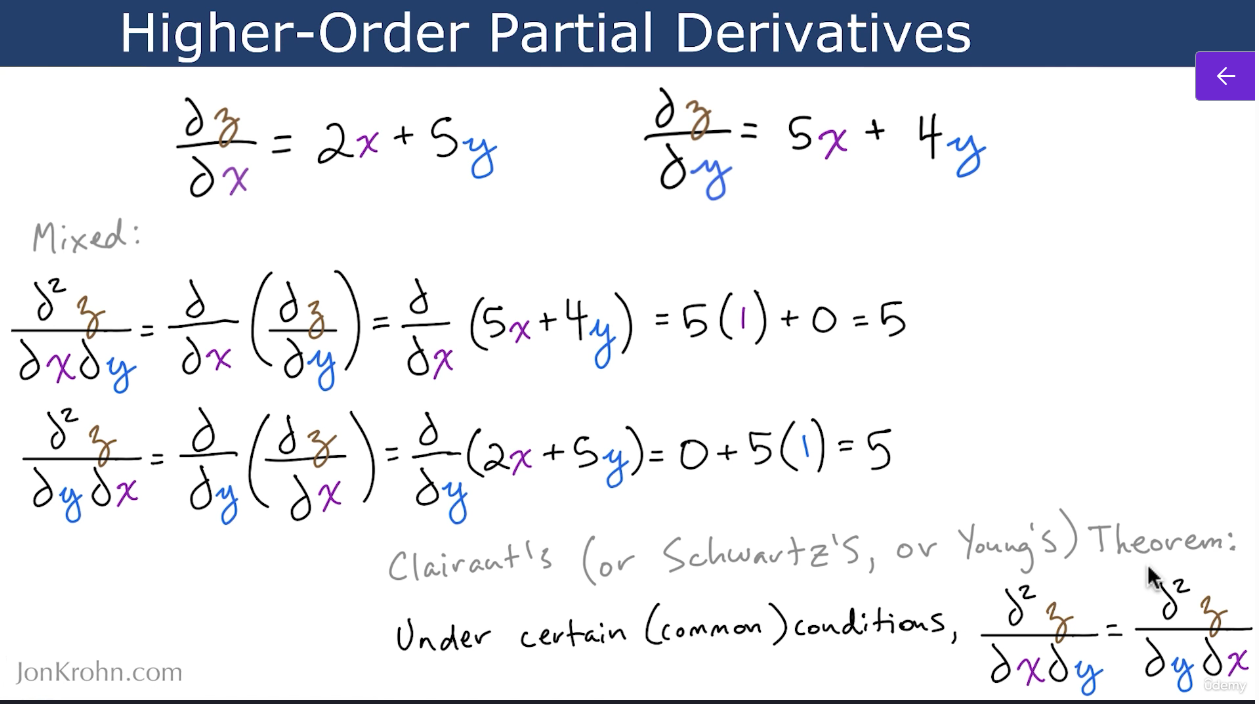 Higher-Order Partial Derivatives
∂z/∂x = 2x + 5y
∂z/∂y = 5x + 4y
Mixed:
∂²z/∂x∂y = ∂/∂x (∂z/∂y) = ∂/∂x (5x + 4y) = 5(1) + 0 = 5
∂²z/∂y∂x = ∂/∂y (∂z/∂x) = ∂/∂y (2x + 5y) = 0 + 5(1) = 5
Clairaut's (or Schwartz's, or Young's) Theorem:
Under certain (common) conditions, ∂²z/∂x∂y = ∂²z/∂y∂x
JonKrohn.com
ûdemy